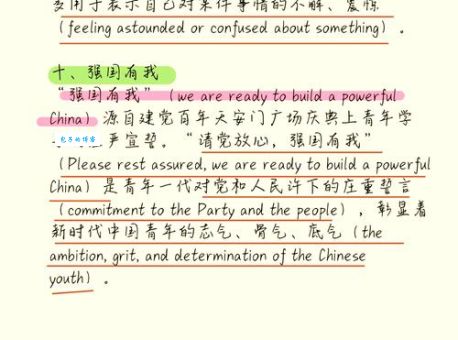 多用于表示自己对某件事情的不解、震惊
(feeling astounded or confused about something)。
十、强国有我
“强国有我”(we are ready to build a powerful
China)源自建党百年天安门广场庆典上青年学
严宣誓。“请党放心，强国有我”
(Please rest assured, we are ready to build a powerful
China)是青年一代对党和人民许下的庄重誓言
(commitment to the Party and the people)，彰显着
新时代中国青年的志气、骨气、底气(the
ambition, grit, and determination of the Chinese
youth)。